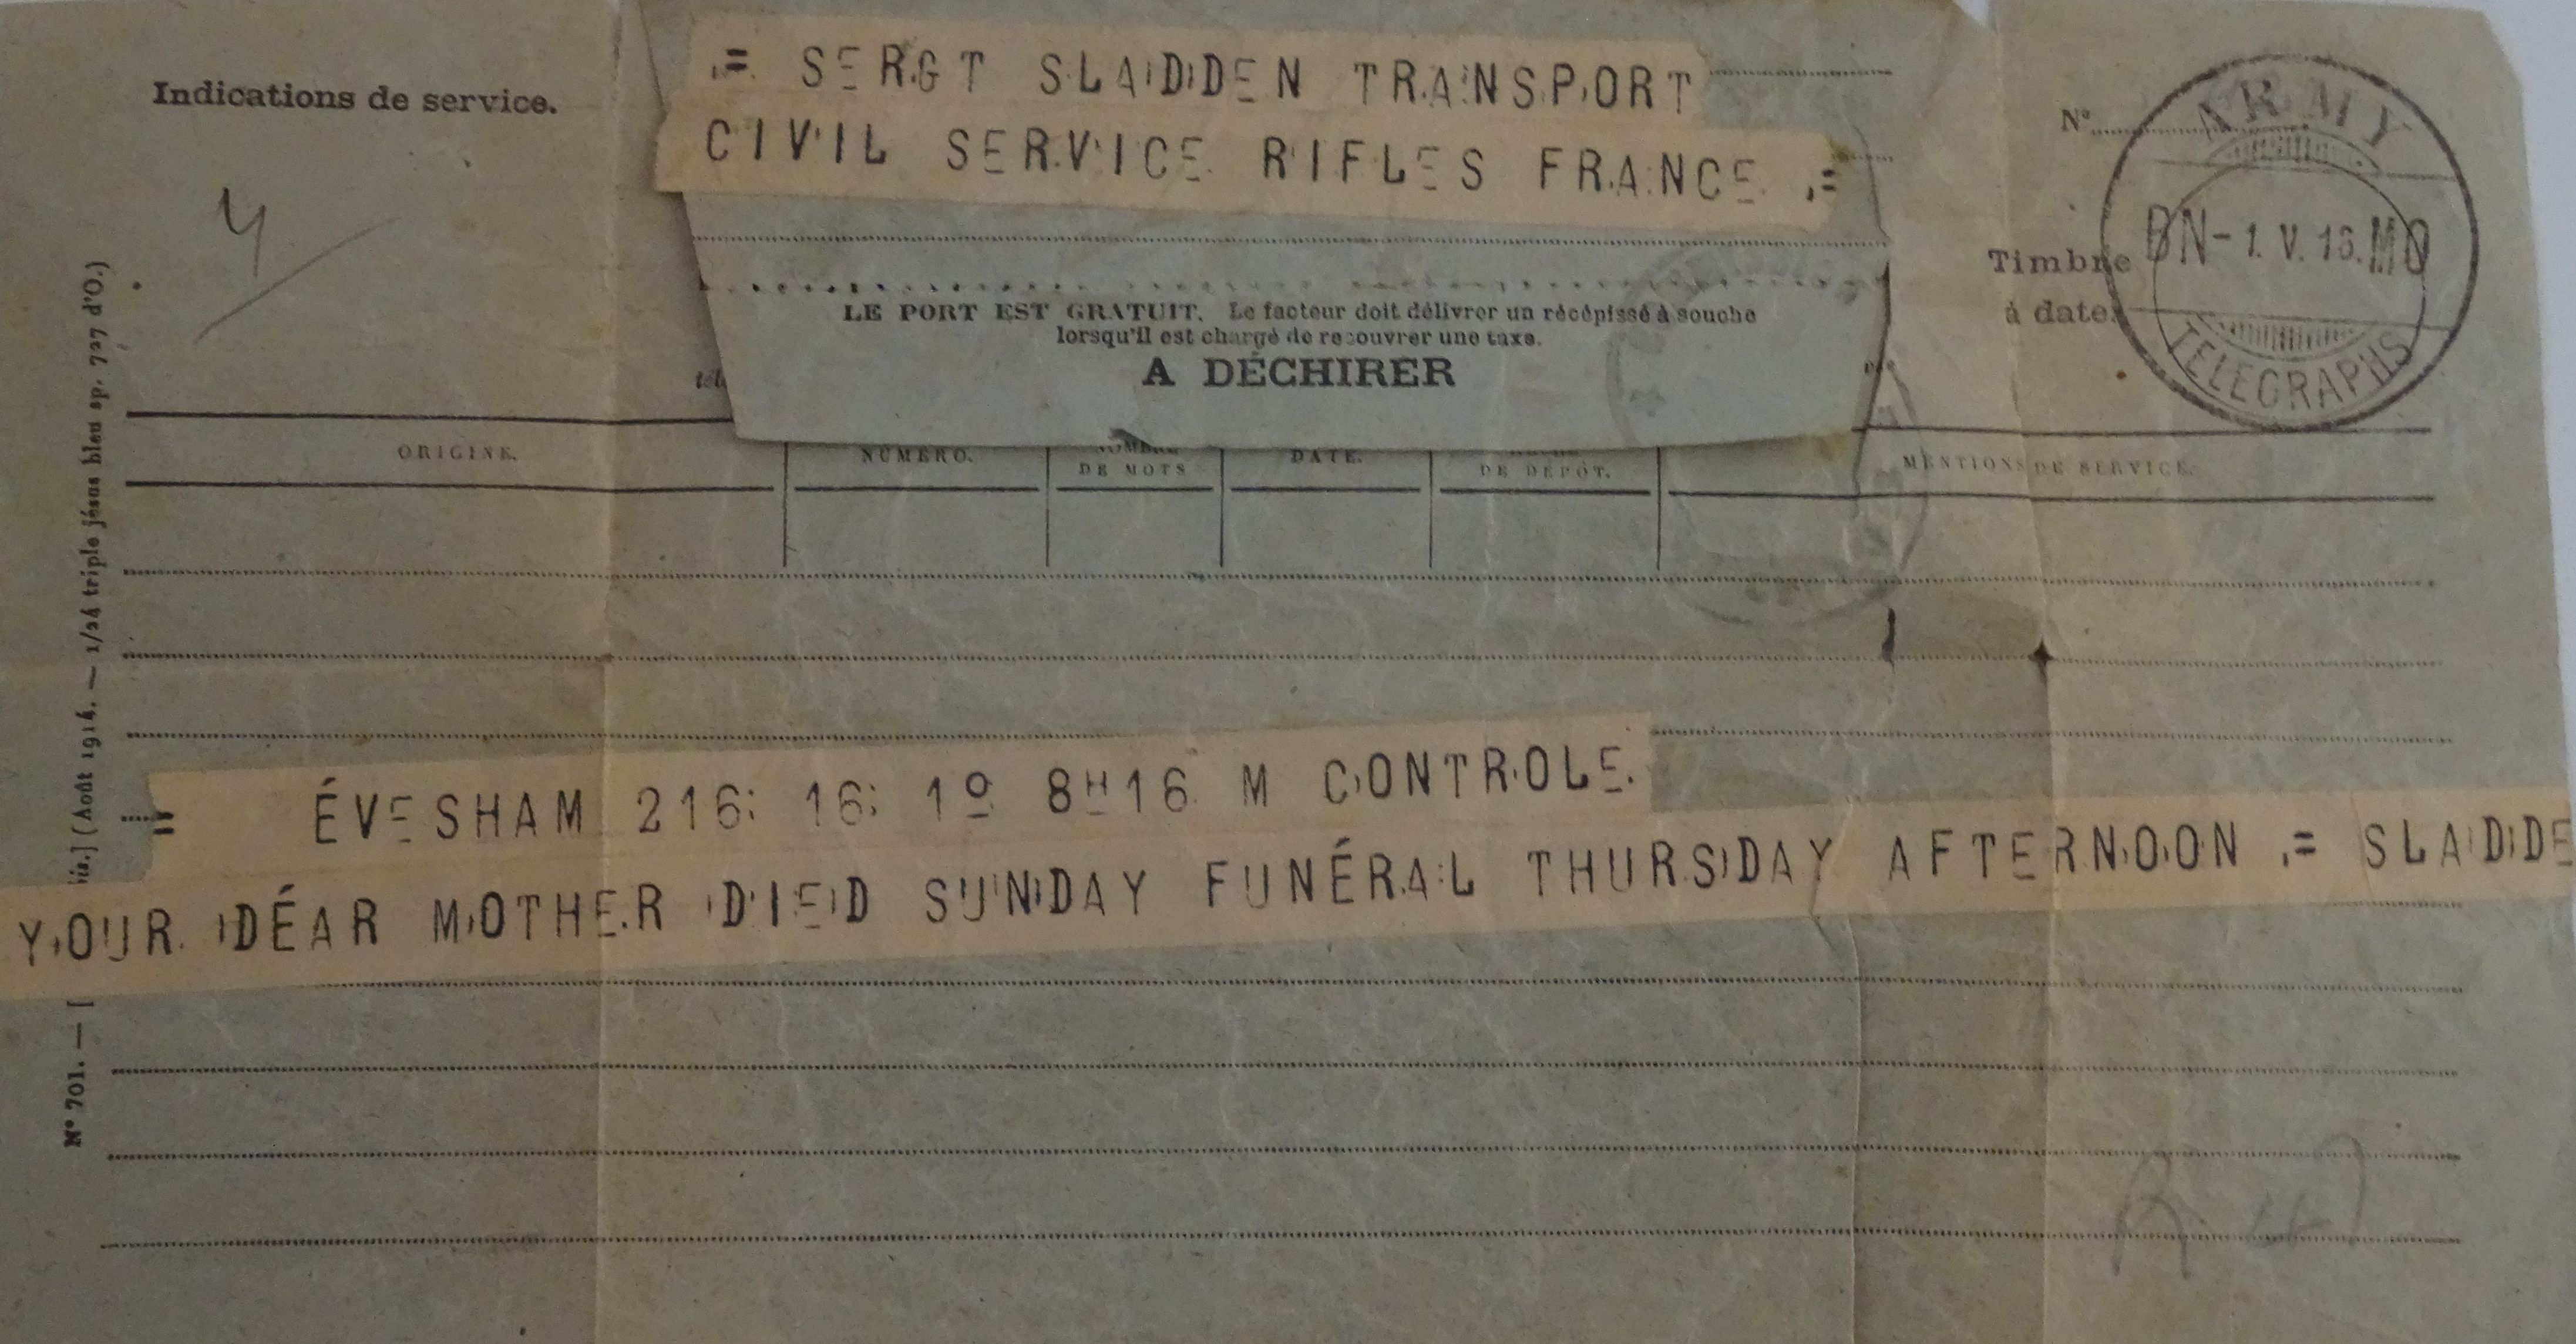 Indications de service.
.= SERGT SLADDEN TRANSPORT
CIVIL SERVICE RIFLES FRANCE .=
Nº
ARMY
Timbre
à date.
BN- 1. V. 16. MO
TELEGRAPHS
4
LE PORT EST GRATUIT. Le facteur doit délivrer un récépissé à souche
lorsqu'il est chargé de recouvrer une taxe.
A DÉCHIRER
ORIGINE.
NUMÉRO.
NOMBRE
DE MOTS
DATE.
DE DÉPÔT.
MENTIONS DE SERVICE.
= ÉVESHAM 216: 16: 1º 8H16 M CONTROLE.
YOUR DÉAR MOTHER DIED SUNDAY FUNÉRAL THURSDAY AFTERNOON .= SLADDE
Nº 701. — [ bis.] (Août 1914. — 1/24 triple jésus bleu sp. 727 d'O.)